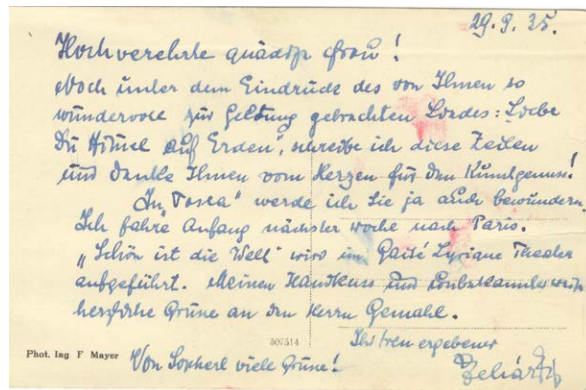 29.9.35.
Hochverehrte gnädige Frau!
Noch unter dem Eindrucke des von Ihnen so
wundervoll zur Geltung gebrachten Liedes: Liebe
Du Himmel auf Erden", schreibe ich diese Zeilen
und danke Ihnen vom Herzen für den Kunstgenuss!
„In Tosca" werde ich Sie ja auch bewundern.
Ich fahre Anfang nächster Woche nach Paris.
„Schön ist die Welt" wird im Gaité Lyrique Theater
aufgeführt. Meinen Handkuss und unbekannterweise
herzliche Grüße an den Herrn Gemahl.
Ihr treu ergebener
Lehár
507514
Phot. Ing F Mayer
Von Sopherl viele Grüße!